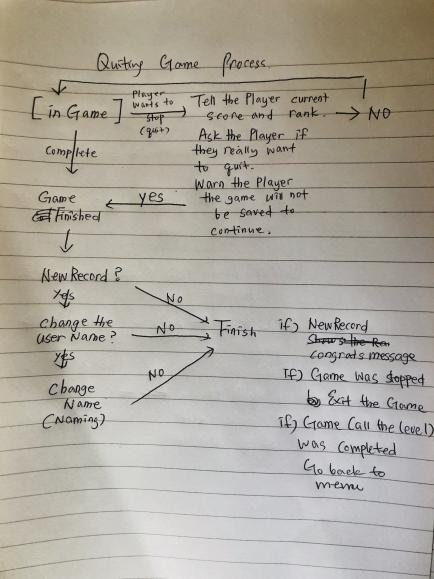 Quiting Game Process.
[in Game]
Player
wants to
stop
(quit)
Tell the Player current
score and rank.
NO
Ask the Player if
they really want
to quit.
Warn the Player
the game will not
be saved to
continue.
Complete
yes
Game
Finished
New Record?
Yes
No
Change the
user Name?
No
Finish
yes
Change
Name
(Naming)
No
if) New Record
congrats message
If) Game was stopped
Exit the Game
if) Game (all the level)
was completed
Go back to
menu